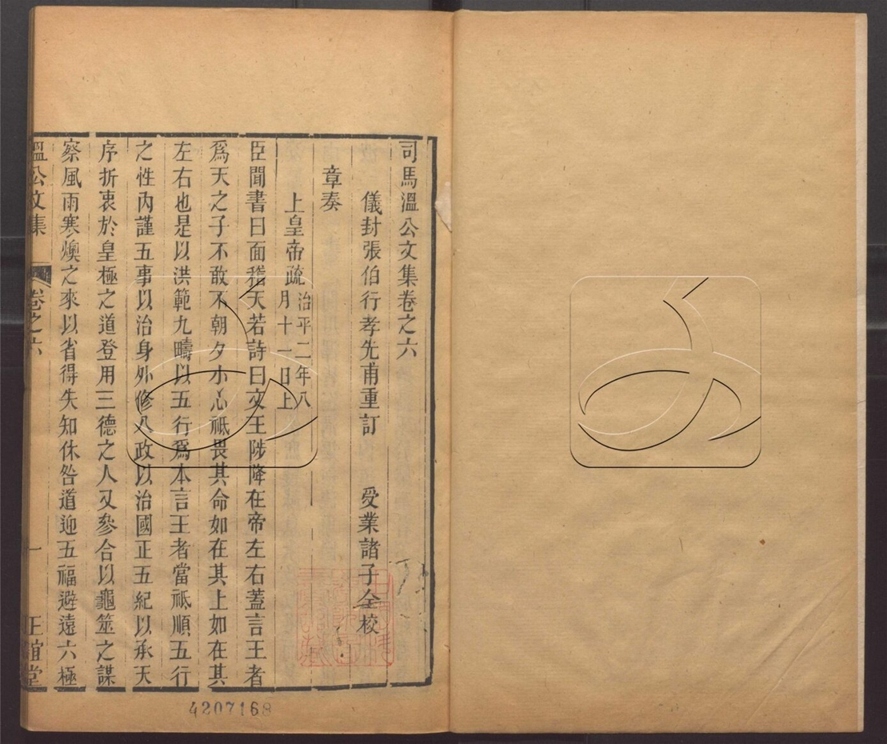 司馬溫公文集卷之六
儀封張伯行孝先甫重訂 受業諸子全校
章奏
上皇帝疏 治平二年八月十一日上
臣聞書曰面稽天若詩曰文王陟降在帝左右蓋言王者
爲天之子不敢不朝夕小心祗畏其命如在其上如在其
左右也是以洪範九疇以五行爲本言王者當祗順五行
之性內謹五事以治身外修八政以治國正五紀以承天
序折衷於皇極之道登用三德之人又參合以龜筮之謀
察風雨寒燠之來以省得失知休咎道迎五福避遠六極
溫公文集 卷之六 一 正誼堂
4207168